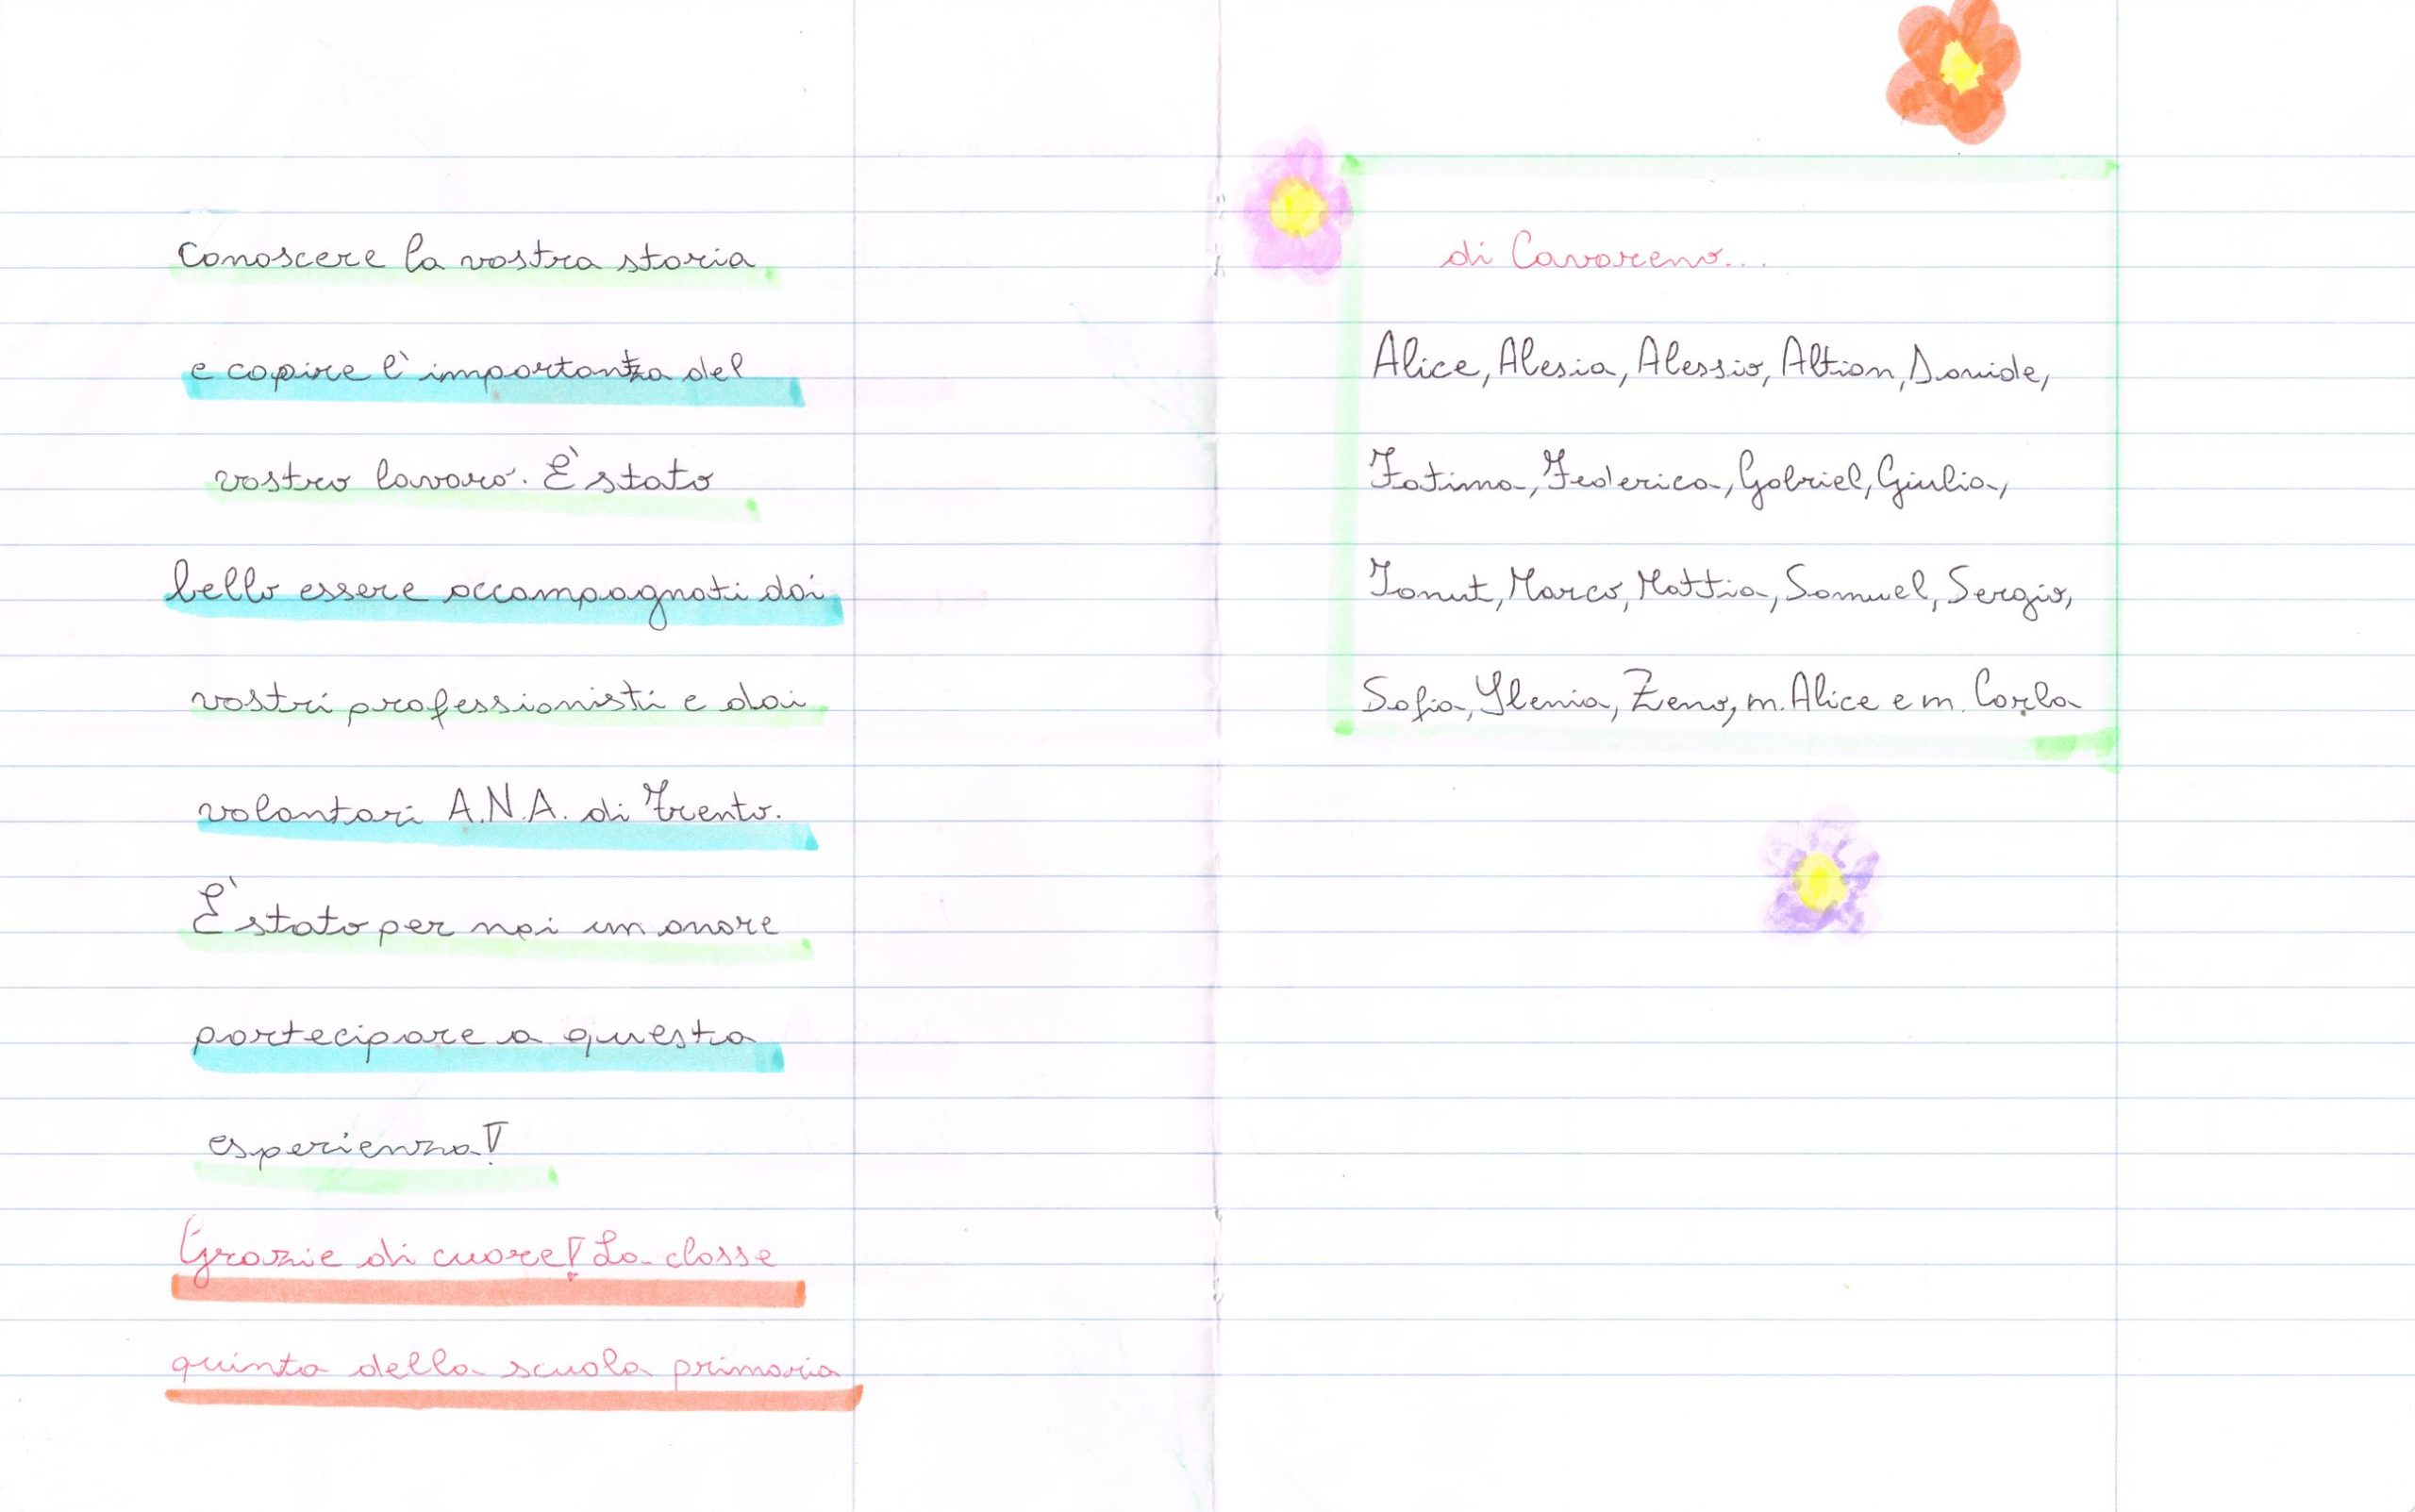 conoscere la vostra storia
e capire l'importanza del
vostro lavoro. È stato
bello essere accompagnati dai
vostri professionisti e dai
volontari A.N.A. di Trento.
È stato per noi un onore
partecipare a questa
esperienza!
Grazie di cuore! La classe
quinta della scuola primaria
di Cavareno...
Alice, Alesia, Alessio, Altian, Davide,
Fatima, Federica, Gabriel, Giulia,
Ionut, Marco, Mattia, Samuel, Sergio,
Sofia, Ylenia, Zeno, m. Alice e m. Carla